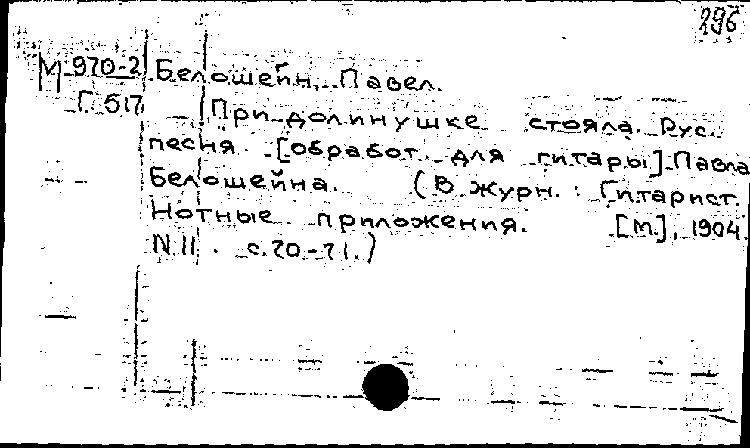 296
М 970-2 Белошейн, Павел.
Г 517 При долинушке стояла. Рус.
песня. [обработ. для гитары] Павла
Белошейна. (В журн.: Гитарист.
Нотные приложения. [М.], 1904.
N 11. с. 20-21.)